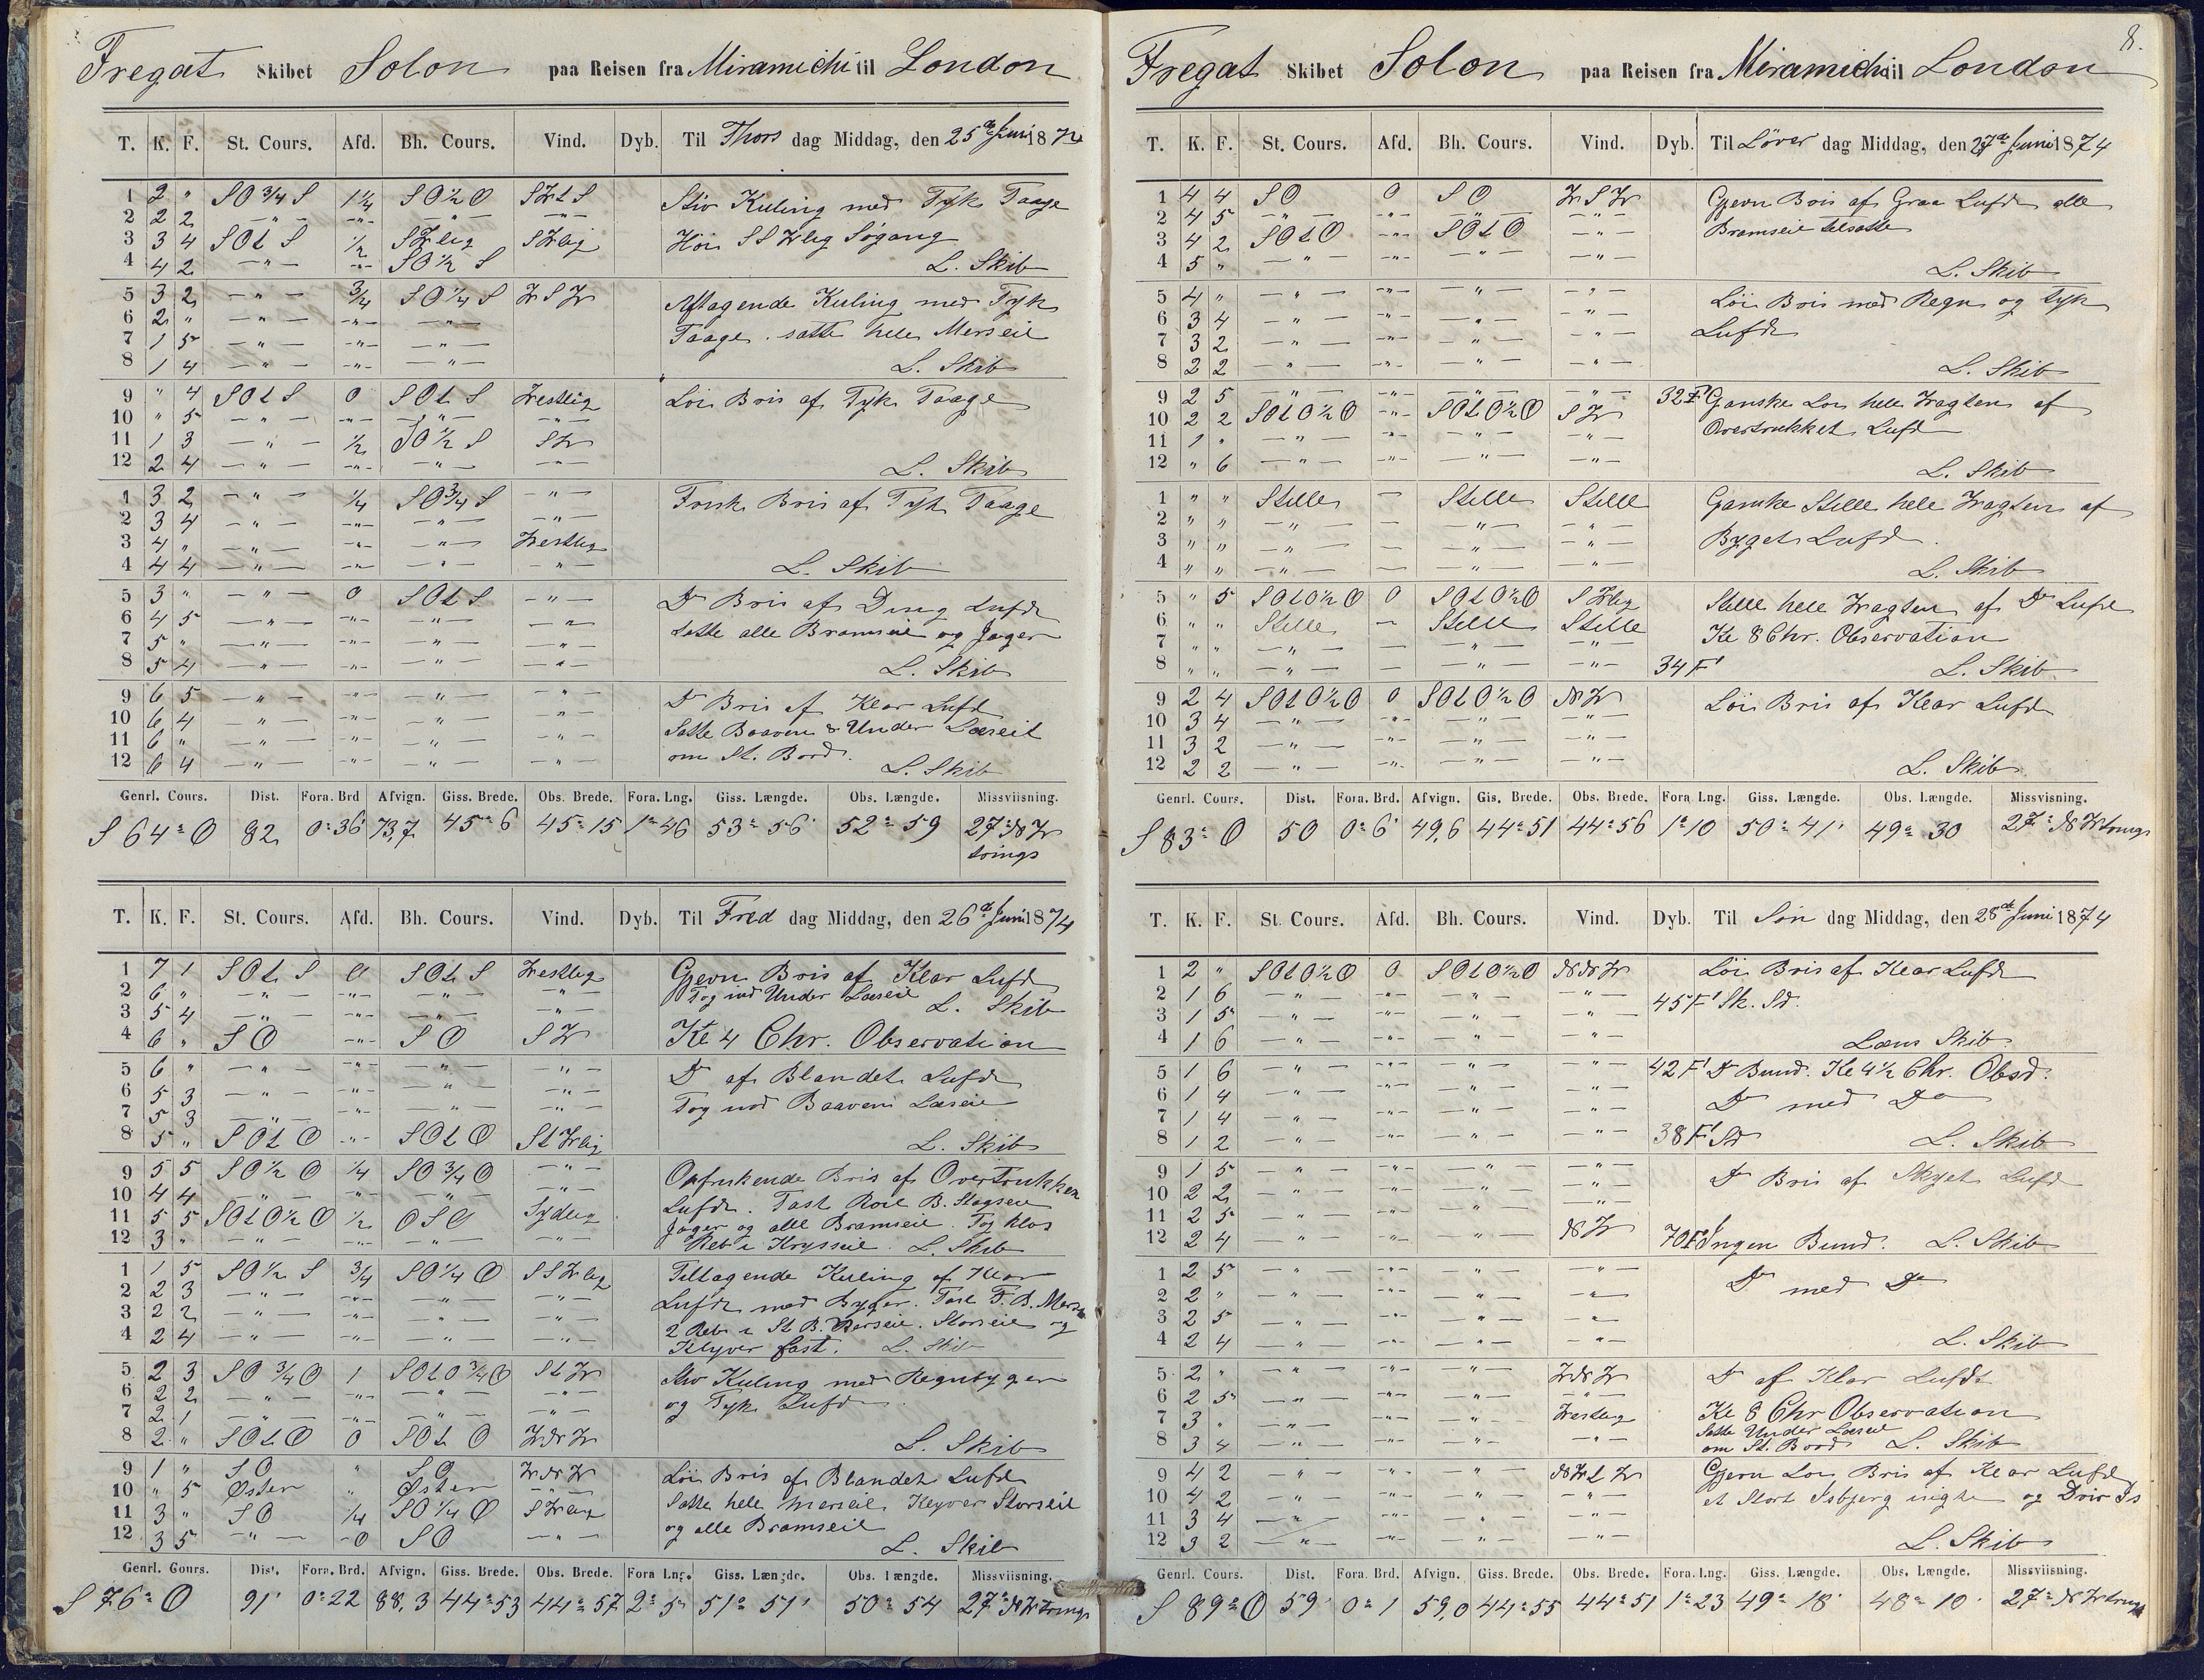 Fregat Skibet Solon paa Reisen fra Miramichi til London
T. K. F. St. Cours. Afd. Bh. Cours. Vind. Dyb. Til Thors dag Middag, den 25de Juni 1874
1 2 " SO 3/4 S 1 1/4 SO 1/2 O SWtS Stiv Kuling med Tyk Taage
2 2 2 — " — -"- — " — -"-
3 3 4 SOtS 1/2 SWlig SWlig Høi SSWlig Søgang
4 4 2 — " — -"- SO 1/2 S L. Skib
5 3 2 — " — 3/4 SO 1/4 S WSW Aftagende Kuling med Tyk
6 2 " — " — -"- — " —
7 1 5 — " — -"- — " — Taage. satte hele Merseil
8 1 4 — " — -"- — " — L. Skib
9 " 4 SOtS 0 SOtS Westlig Løi Bris af Tyk Taage
10 " 5 — " — -"- — " — -"-
11 1 3 — " — 1/2 SO 1/2 S SW
12 2 4 — " — -"- — " — -"- L. Skib
1 3 2 — " — 1/4 SO 3/4 S — " — Frisk Bris af Tyk Taage
2 3 4 — " — -"- — " — — " —
3 4 " — " — -"- — " — Westlig
4 4 4 — " — -"- — " — — " — L. Skib
5 3 " — " — 0 SOtS — " — Do Bris af Ding Lufdt
6 4 5 — " — -"- — " — — " —
7 5 " — " — -"- — " — — " — Satte alle Bramseil og Jager
8 5 4 — " — -"- — " — — " — L. Skib
9 6 5 — " — -"- — " — — " — Do Bris af Klar Lufdt
10 6 4 — " — -"- — " — — " — Satte Baaven & Under Læseil
11 6 " — " — -"- — " — — " — om St. Bord.
12 6 4 — " — -"- — " — — " — L. Skib
Genrl. Cours. Dist. Fora. Brd Afvign. Giss. Brede. Obs. Brede. Fora. Lng. Giss. Længde. Obs. Længde. Missviisning.
S 64° O 82 0°36 73,7 45°6 45°15 1°46 53°56' 52°59 27° NW
trings
T. K. F. St. Cours. Afd. Bh. Cours. Vind. Dyb. Til Fred dag Middag, den 26de Juni 1874
1 7 1 SOtS 0 SOtS Westlig Gjevn Bris af Klar Lufdt
2 6 " — " — -"- — " — — " — Tog ind Under Læseil
3 5 4 — " — -"- — " — — " — L. Skib
4 6 " SO -"- SO SW Kl 4 Chr. Observation
5 6 " — " — -"- — " — — " — Do af Blandet Lufdt
6 5 3 — " — -"- — " — — " —
7 5 3 — " — -"- — " — — " — Tog ind Baaven Læseil
8 5 " SOtO -"- SOtO StWlig L. Skib
9 5 5 SO 1/2 O 1/4 SO 3/4 O — " — Opfriskende Bris af Overtrukken
10 4 4 — " — -"- — " — — " — Lufdt. Fast Roil B. Stagseil
11 5 5 SOtO 1/2 O 1/2 OSO Sydlig Jager og alle Bramseil. Tog klos
12 3 " — " — -"- — " — — " — Reb i Krysseil. L. Skib
1 1 5 SO 1/2 S 3/4 SO 1/4 O SSWlig Tiltagende Kuling af Klar
2 2 3 — " — -"- — " — — " — Lufdt med Byger. Fast F. B. Mers
3 2 2 — " — -"- — " — — " — 2 Reb i St B. Merseil. Storseil og
4 2 4 — " — -"- — " — — " — Klyver fast. L. Skib
5 2 3 SO 3/4 O 1 SOtO 3/4 O StW Stiv Kuling med Regnbyger
6 2 2 — " — -"- — " — — " — og Tyk Lufdt.
7 2 1 — " — -"- — " — — " —
8 2 " SOtO 0 SOtO WNW L. Skib
9 1 " SO " SO WNW Løi Bris af Blandet Lufdt
10 " 5 Østen " Østen — " — Satte hele Merseil, Klyver Storseil
11 3 " SO 1/4 SO 1/4 O SWlig og alle Bramseil
12 3 5 — " — 0 SO — " — L. Skib
Genrl. Cours. Dist. Fora. Brd. Afvign. Giss. Brede. Obs. Brede. Fora Lng. Giss. Længde. Obs. Længde. Missviisning.
S 76° O 91' 0°22 88,3 44°53 44°57 2°5 51°51' 50°54 27° NWtrings
8.
Fregat Skibet Solon paa Reisen fra Miramichi til London
T. K. F. St. Cours. Afd. Bh. Cours. Vind. Dyb. Til Løver dag Middag, den 27de Juni 1874
1 4 4 SO 0 SO WSW Gjevn Bris af Graa Lufdt alle
2 4 5 — " — -"- — " — — " — Bramseil tilsatte
3 4 2 SOtO -"- SOtO — " —
4 5 " — " — -"- — " — — " — L. Skib
5 4 " — " — -"- — " — — " — Løi Bris med Regn og tyk
6 3 4 — " — -"- — " — — " — Lufdt
7 3 2 — " — -"- — " — — " —
8 2 2 — " — -"- — " — — " — L. Skib
9 2 5 — " — -"- — " — — " — 32 F' Ganske Løi hele Wagten af
10 2 2 SOtO 1/2 O -"- SOtO 1/2 O SW Overtrukket Lufd
11 1 " — " — -"- — " — — " —
12 " 6 — " — -"- — " — — " — L. Skib
1 " " Stille — Stille Stille Ganske Stille hele Wagten af
2 " " — " — — — " — — " —
3 " " — " — — — " — — " — Byget Lufd.
4 " " — " — — — " — — " — L. Skib
5 " 5 SOtO 1/2 O 0 SOtO 1/2 O SWlig Stille hele Wagten af Do Lufd
6 " " Stille — Stille Stille Kl 8 Chr. Observation
7 " " — " — — — " — — " —
8 " " — " — — — " — — " — 34 F' L. Skib
9 2 4 SOtO 1/2 O 0 SOtO 1/2 O NW Løi Bris af Klar Lufd
10 3 4 — " — -"- — " — — " —
11 3 2 — " — -"- — " — — " —
12 2 2 — " — -"- — " — — " — L. Skib
Genrl. Cours. Dist. Fora. Brd. Afvign. Gis. Brede. Obs. Brede. Fora Lng. Giss. Længde. Obs. Længde. Missvisning.
S 83° O 50 0°6' 49,6 44°51 44°56 1°10 50°41' 49°30 27° NWtrings
T. K. F. St. Cours. Afd. Bh. Cours. Vind. Dyb. Til Søn dag Middag, den 28de Juni 1874
1 2 " SOtO 1/2 O 0 SOtO 1/2 O NNW Løi Bris af Klar Lufdt
2 1 6 — " — -"- — " — — " — 45 F' Sk. Sd.
3 1 5 — " — -"- — " — — " —
4 1 6 — " — -"- — " — — " — Læns Skib.
5 1 6 — " — -"- — " — — " — 42 F' Do Bund. Kl 4 1/2 Chr. Obsd.
6 1 4 — " — -"- — " — — " — Do med Do
7 1 4 — " — -"- — " — — " —
8 1 2 — " — -"- — " — — " — 38 F' Sd L. Skib
9 1 5 — " — -"- — " — — " — Do Bris af Skyet Lufd
10 2 2 — " — -"- — " — — " —
11 2 5 — " — -"- — " — — " —
12 2 4 — " — -"- — " — NW 70 F' Ingen Bund. L. Skib
1 2 5 — " — -"- — " — — " — Do med Do
2 2 " — " — -"- — " — — " —
3 2 5 — " — -"- — " — — " —
4 2 4 — " — -"- — " — — " — L. Skib
5 2 " — " — -"- — " — WNW Do af Klar Lufdt
6 2 5 — " — -"- — " — — " —
7 3 " — " — -"- — " — Westlig Kl 8 Chr Observation
8 3 4 — " — -"- — " — — " — Satte Under Læseil
om St. Bord L. Skib
9 4 2 — " — -"- — " — NWtW Gjevn Løi Bris af Klar Lufd
10 4 2 — " — -"- — " — — " — et Stort Isbjerg og Driv Is
11 3 4 — " — -"- — " — — " —
12 3 2 — " — -"- — " — — " — L. Skib
Genrl. Cours. Dist. Fora. Brd. Afvign. Giss. Brede. Obs. Brede. Fora. Lng. Giss. Længde. Obs. Længde. Missviisning.
S 89° O 59' 0°1 59,0 44°55 44°51 1°23 49°18' 48°10' 27° NWtrings